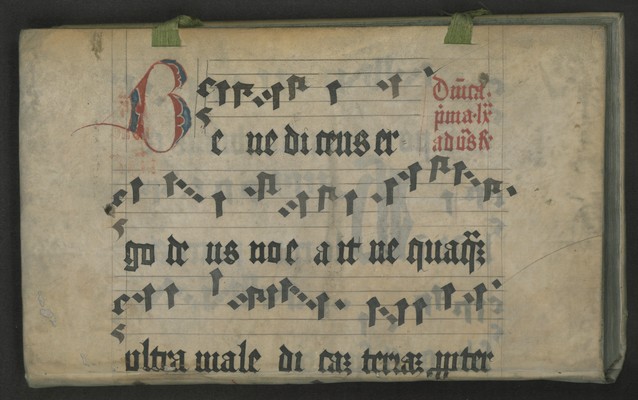 Be ne di cens er
go de us noe a it ne quaqꝫ
ultra male di caꝫ terraꝫ ꝓpter
Dn̄ica.
p̄ma. lx̄
ad vs̄ꝑ